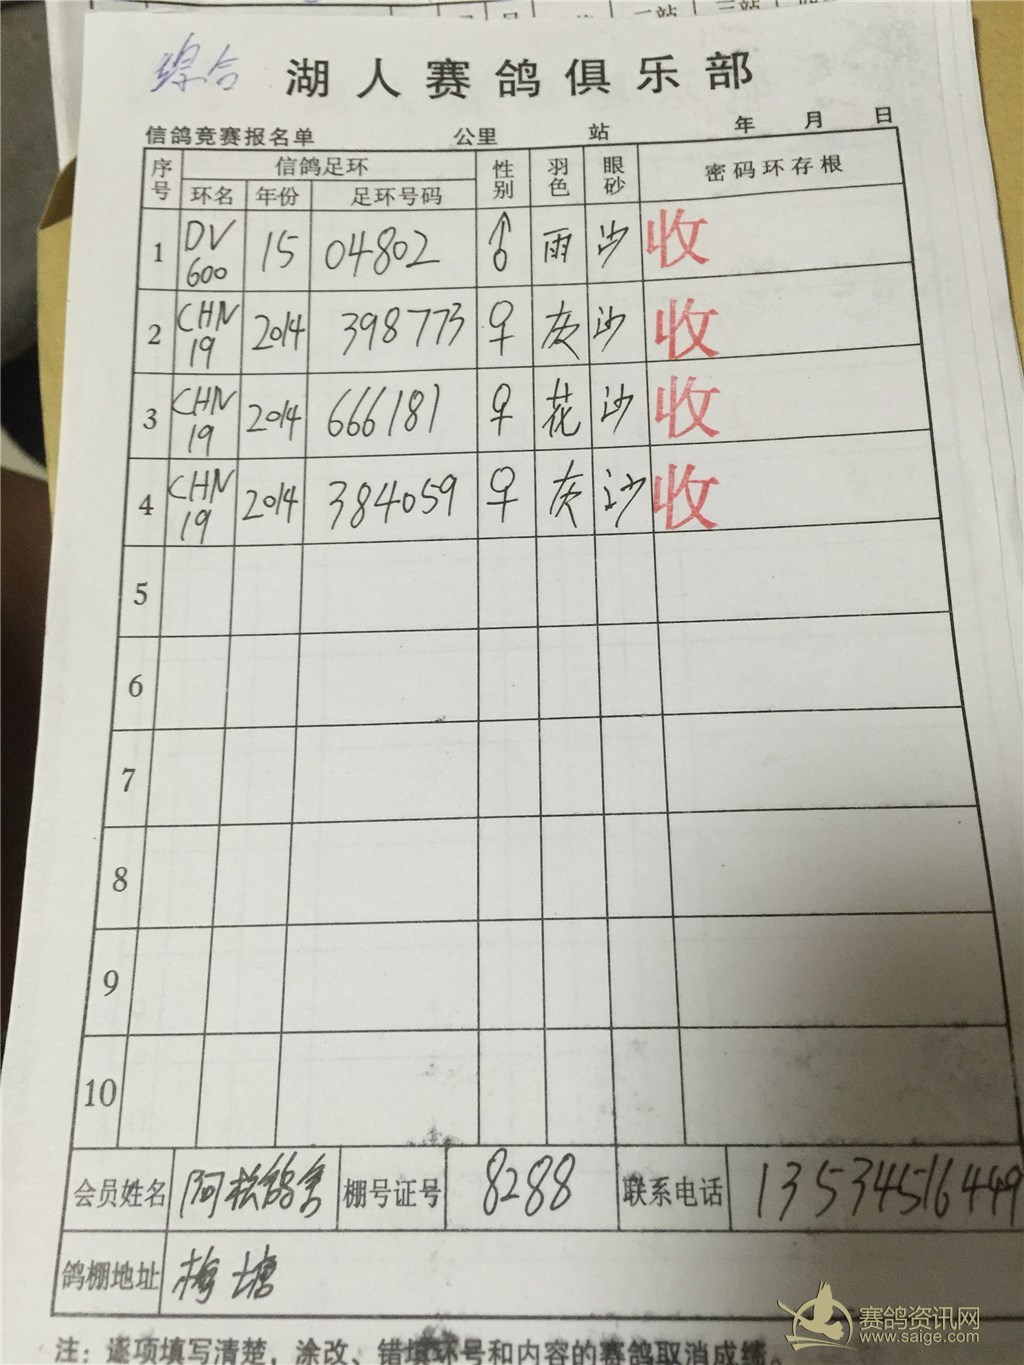 综合
湖人赛鸽俱乐部
信鸽竞赛报名单 公里 站 年 月 日
序号 信鸽足环 性别 羽色 眼砂 密码环存根
环名 年份 足环号码
1 DV 600 15 04802 ♂ 雨 沙 收
2 CHN 19 2014 398773 ♀ 灰 沙 收
3 CHN 19 2014 666181 ♀ 花 沙 收
4 CHN 19 2014 384059 ♀ 灰 沙 收
5
6
7
8
9
10
会员姓名 阿松鸽舍 棚号证号 8288 联系电话 13534516449
鸽棚地址 梅塘
注：逐项填写清楚，涂改、错填环号和内容的赛鸽取消成绩。
赛鸽资讯网
www.saige.com